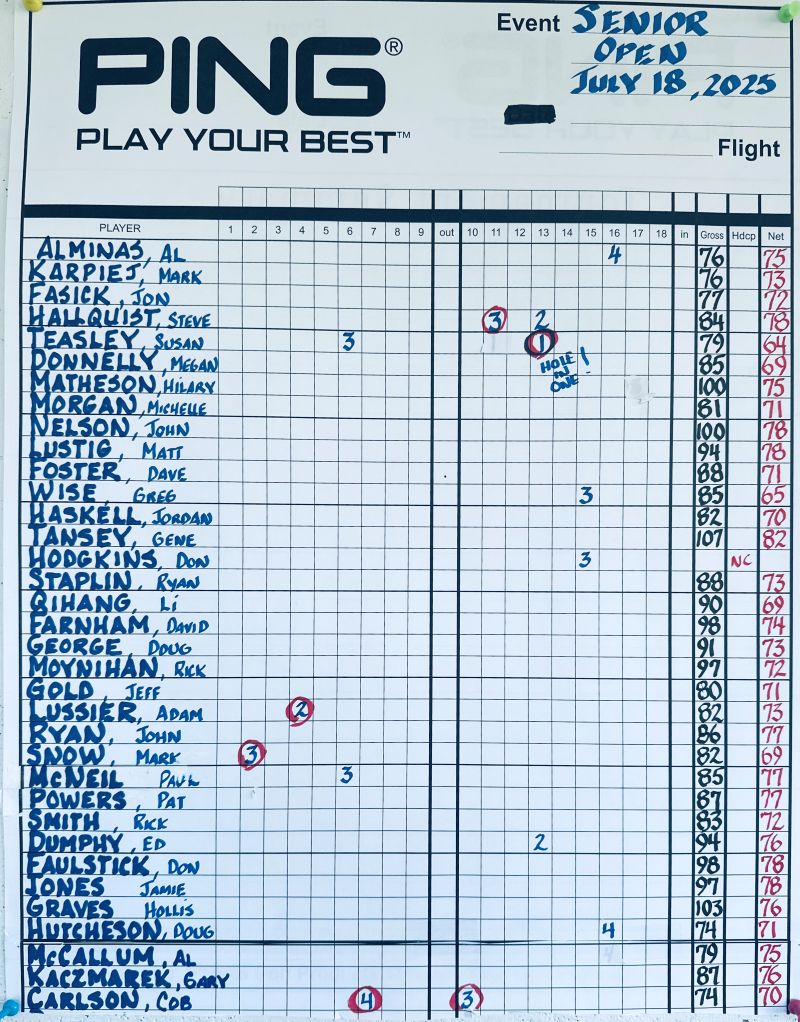 Event SENIOR
OPEN
JULY 18, 2025
PING®
PLAY YOUR BEST™
Flight
PLAYER 1 2 3 4 5 6 7 8 9 out 10 11 12 13 14 15 16 17 18 in Gross Hdcp Net
ALMINAS, AL 4 76 75
KARPIEJ, MARK 76 73
FASICK, JON 77 72
HALLQUIST, STEVE 3 2 84 78
TEASLEY, SUSAN 3 1 79 64
HOLE IN ONE!
DONNELLY, MEGAN 85 69
MATHESON, HILARY 100 75
MORGAN, MICHELLE 81 71
NELSON, JOHN 100 78
LUSTIG, MATT 94 78
FOSTER, DAVE 88 71
WISE, GREG 3 85 65
HASKELL, JORDAN 82 70
TANSEY, GENE 107 82
HODGKINS, DON 3 NC
STAPLIN, RYAN 88 73
QIHANG, Li 90 69
FARNHAM, DAVID 98 74
GEORGE, DOUG 91 73
MOYNIHAN, RICK 97 72
GOLD, JEFF 80 71
LUSSIER, ADAM 2 82 73
RYAN, JOHN 86 77
SNOW, MARK 3 82 69
McNEIL PAUL 3 85 77
POWERS, PAT 87 77
SMITH, RICK 83 72
DUMPHY, ED 2 94 76
FAULSTICK, DON 98 78
JONES JAMIE 97 78
GRAVES HOLLIS 103 76
HUTCHESON, DOUG 4 74 71
McCALLUM, AL 79 75
KACZMAREK, GARY 87 76
CARLSON, COB 4 3 74 70